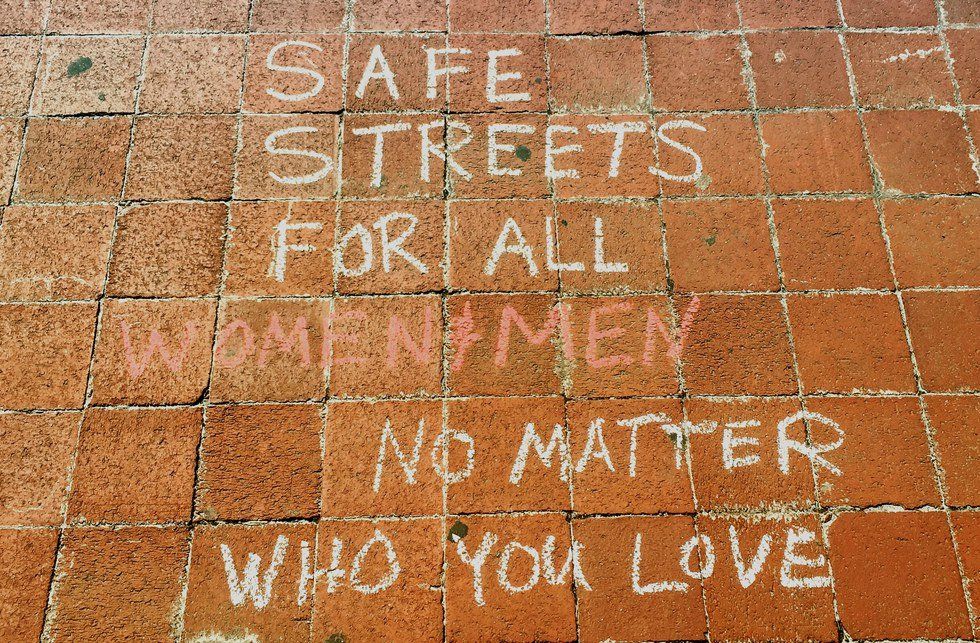 SAFE
STREETS
FOR ALL
WOMEN+MEN
NO MATTER
WHO YOU LOVE